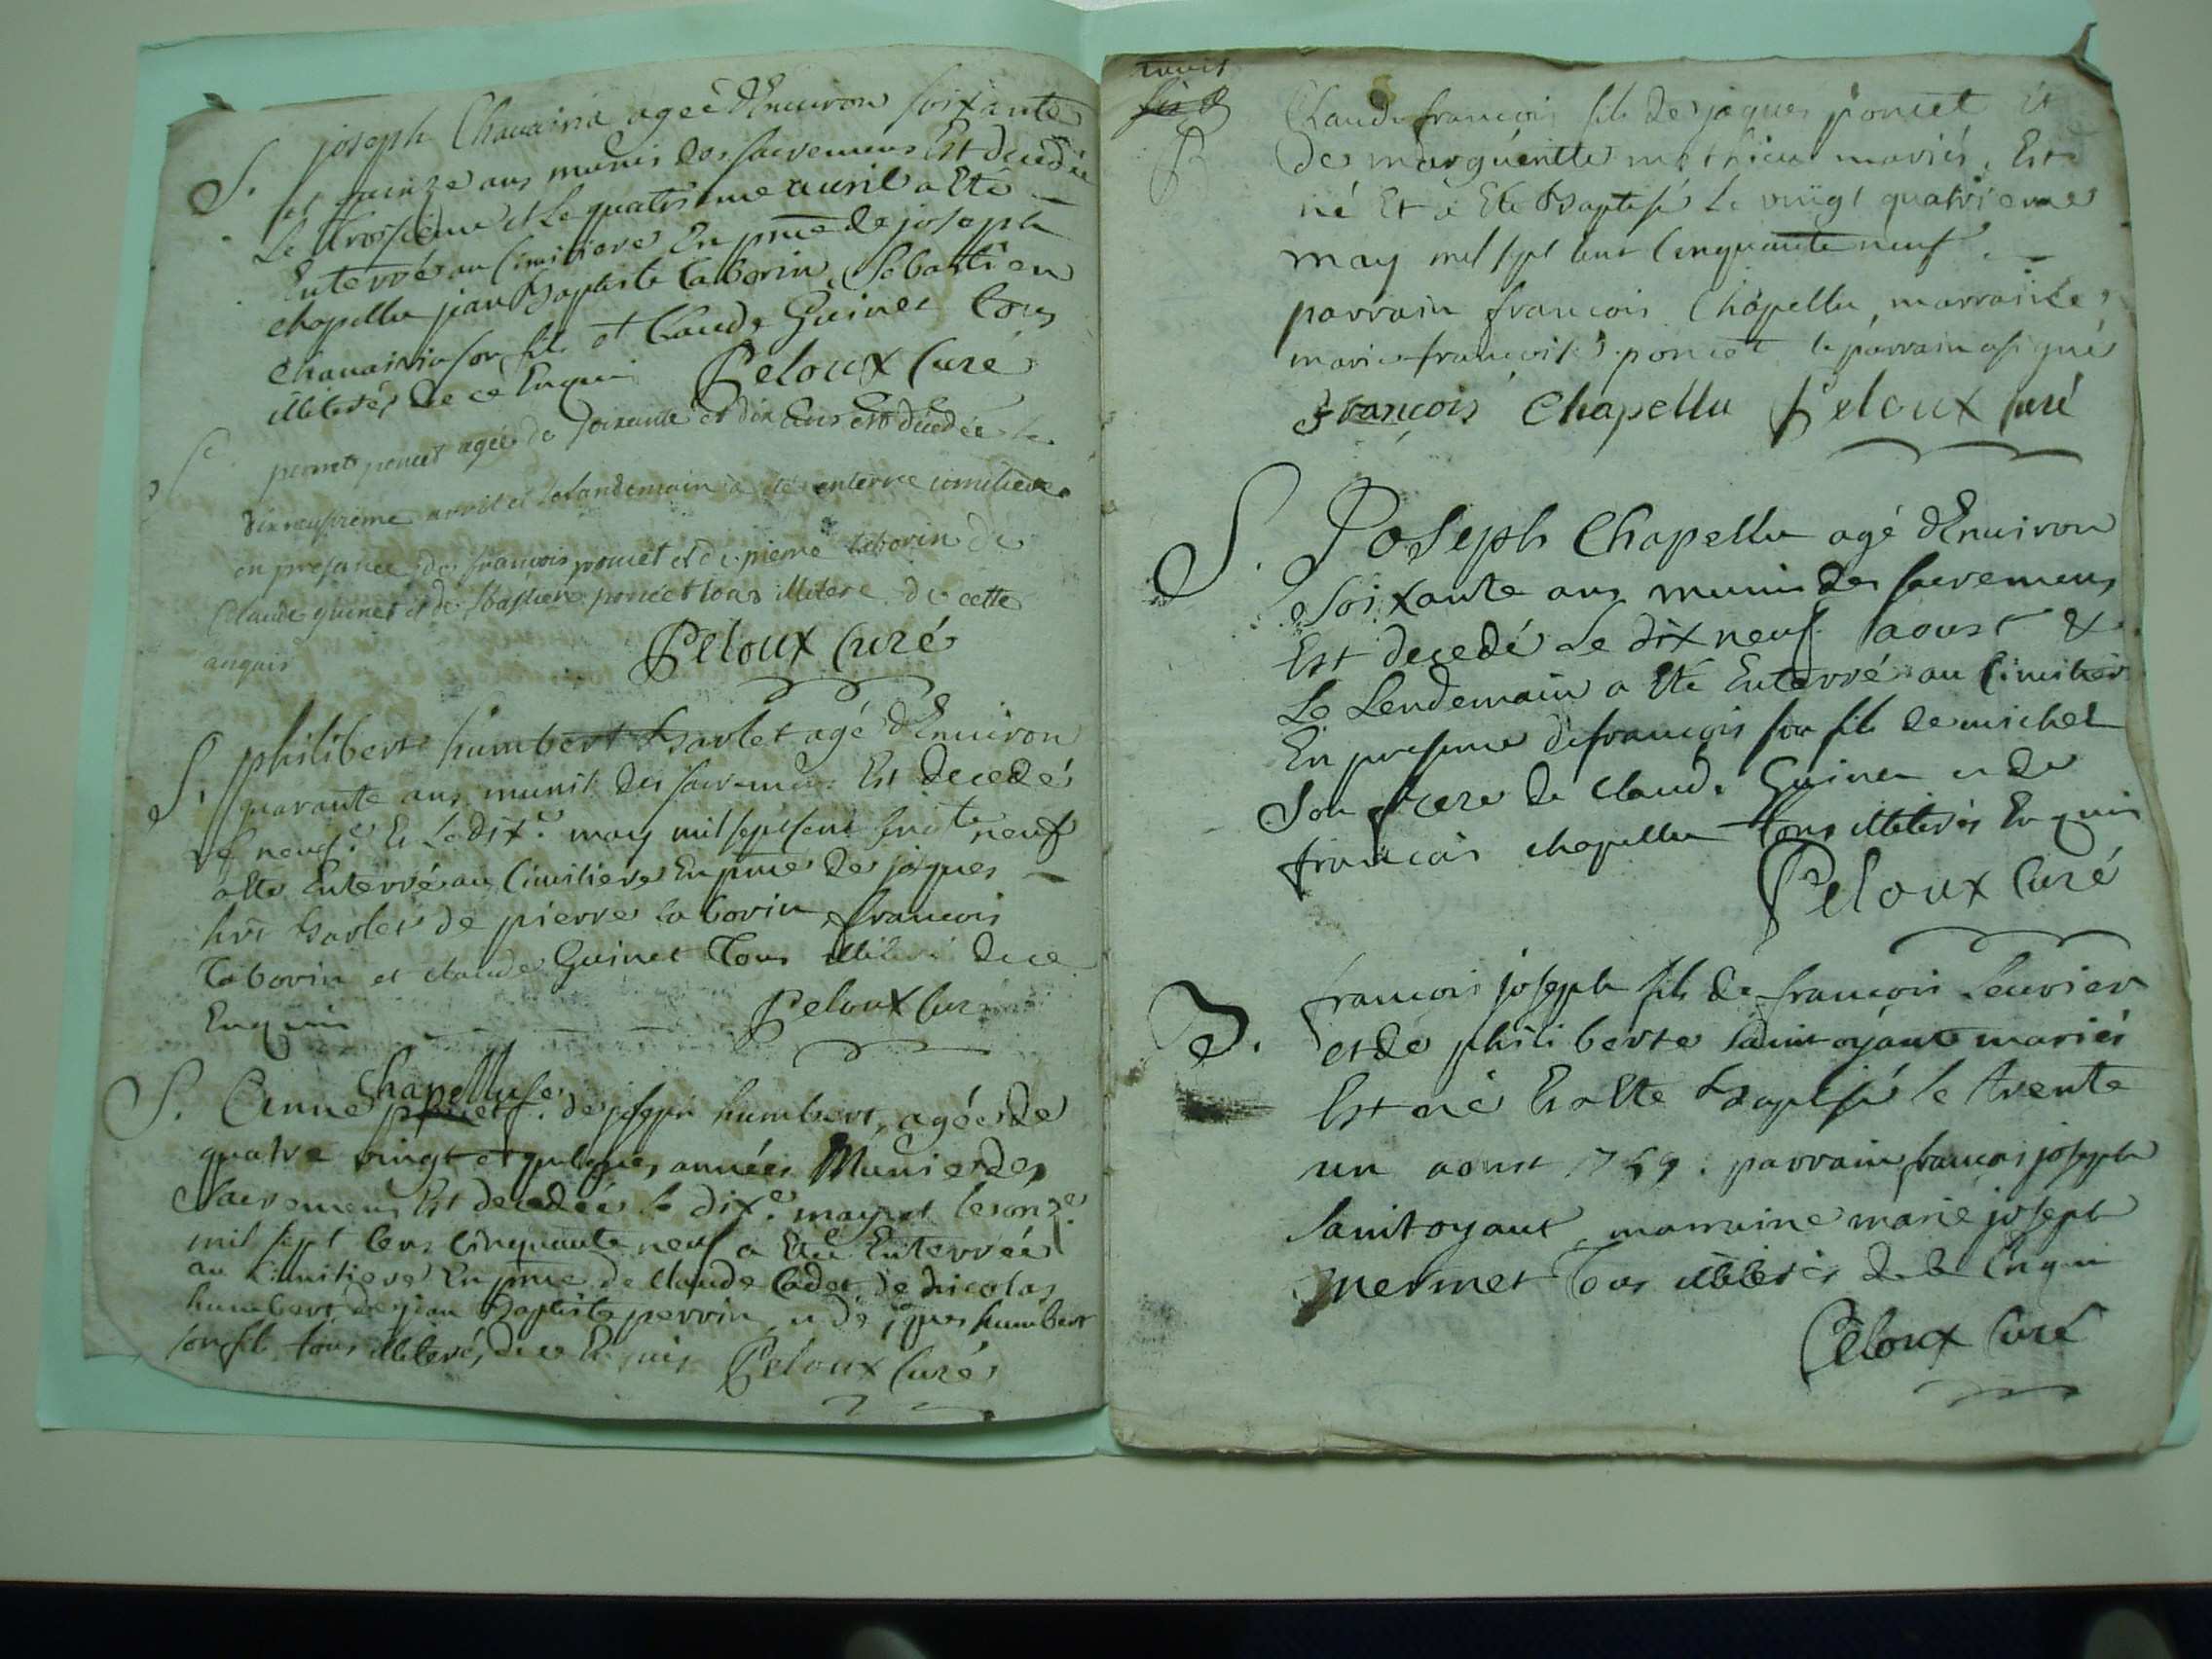 S. joseph Chavairia agée d'Environ soixante
et quinze ans munis des sacremens Est decedée
Le troisieme et Le quatrieme avril a Eté
Enterrée au Cimitiere En pnce de joseph
chapellu jean Baptiste taborin, Sebastien
Chavairia son fils et Claude Guinet tous
illiterés de ce Enquis Peloux Curé
poncet agée de soixante et dix ans est décédée le
dixneufvieme avril et le landemain a été enterrée cimitiere
en presance de francois poncet et de pierre taborin de
Claude guinet et de sbastien poncet tous illitere de cette
anquis
Peloux Curé
S. philibert humbert Barlet agé d'Environ
quarante ans munit des sacremens Est decedé
le neuf.e Et Le dix.e may mil sept sent neuf
a Ete Enterré au Cimitiere En pnce de jaques
hrt Barlet de pierre taborin, francois
taborin et claude Guinet Tous de ce
Enquis Peloux Cur
S. Anne Chapelluse de joseph humbert, agée de
quatre vingt et quelques années Munie des
Sacremens Est decedée le dix.e may et le onz.e
mil sept cens cinquante neuf a Eté Enterrée
au Cimitiere En pnce de Claude Cadet, de Nicolas
humbert de jean Baptiste perrin et de jques humbert
son fils tous illiterés de ce Enquis Peloux Curé
B Claude francois fils de jaques poncet Et
de marguéritte mathieu mariés, Est
né Et a Eté Baptisé Le vingt quatrieme
may mil sept cent Cinquante neuf.
parrain francois Chapellu, marraine
marie francoise poncet le parrain a signé
François Chapellu Peloux Curé
S. Joseph Chapellu agé d'Environ
Soixante ans munis des sacremens
Est decedé Le dix neuf aoust &
Le Lendemain a Eté Enterré au Cimitier
En presence de francois son fils de michel
Son frere de Claude Guinet et de
francois chapellu tous illiterés Enquis
Peloux Curé
B. francois joseph fils de francois Cuvier
et de philiberte Saintoyant mariés
Est né Et a Eté Baptisé le trente
un aoust 1759. parrain francois joseph
Saintoyant marraine marie joseph
mermet Tous illiterés de ce Enquis
Peloux Curé